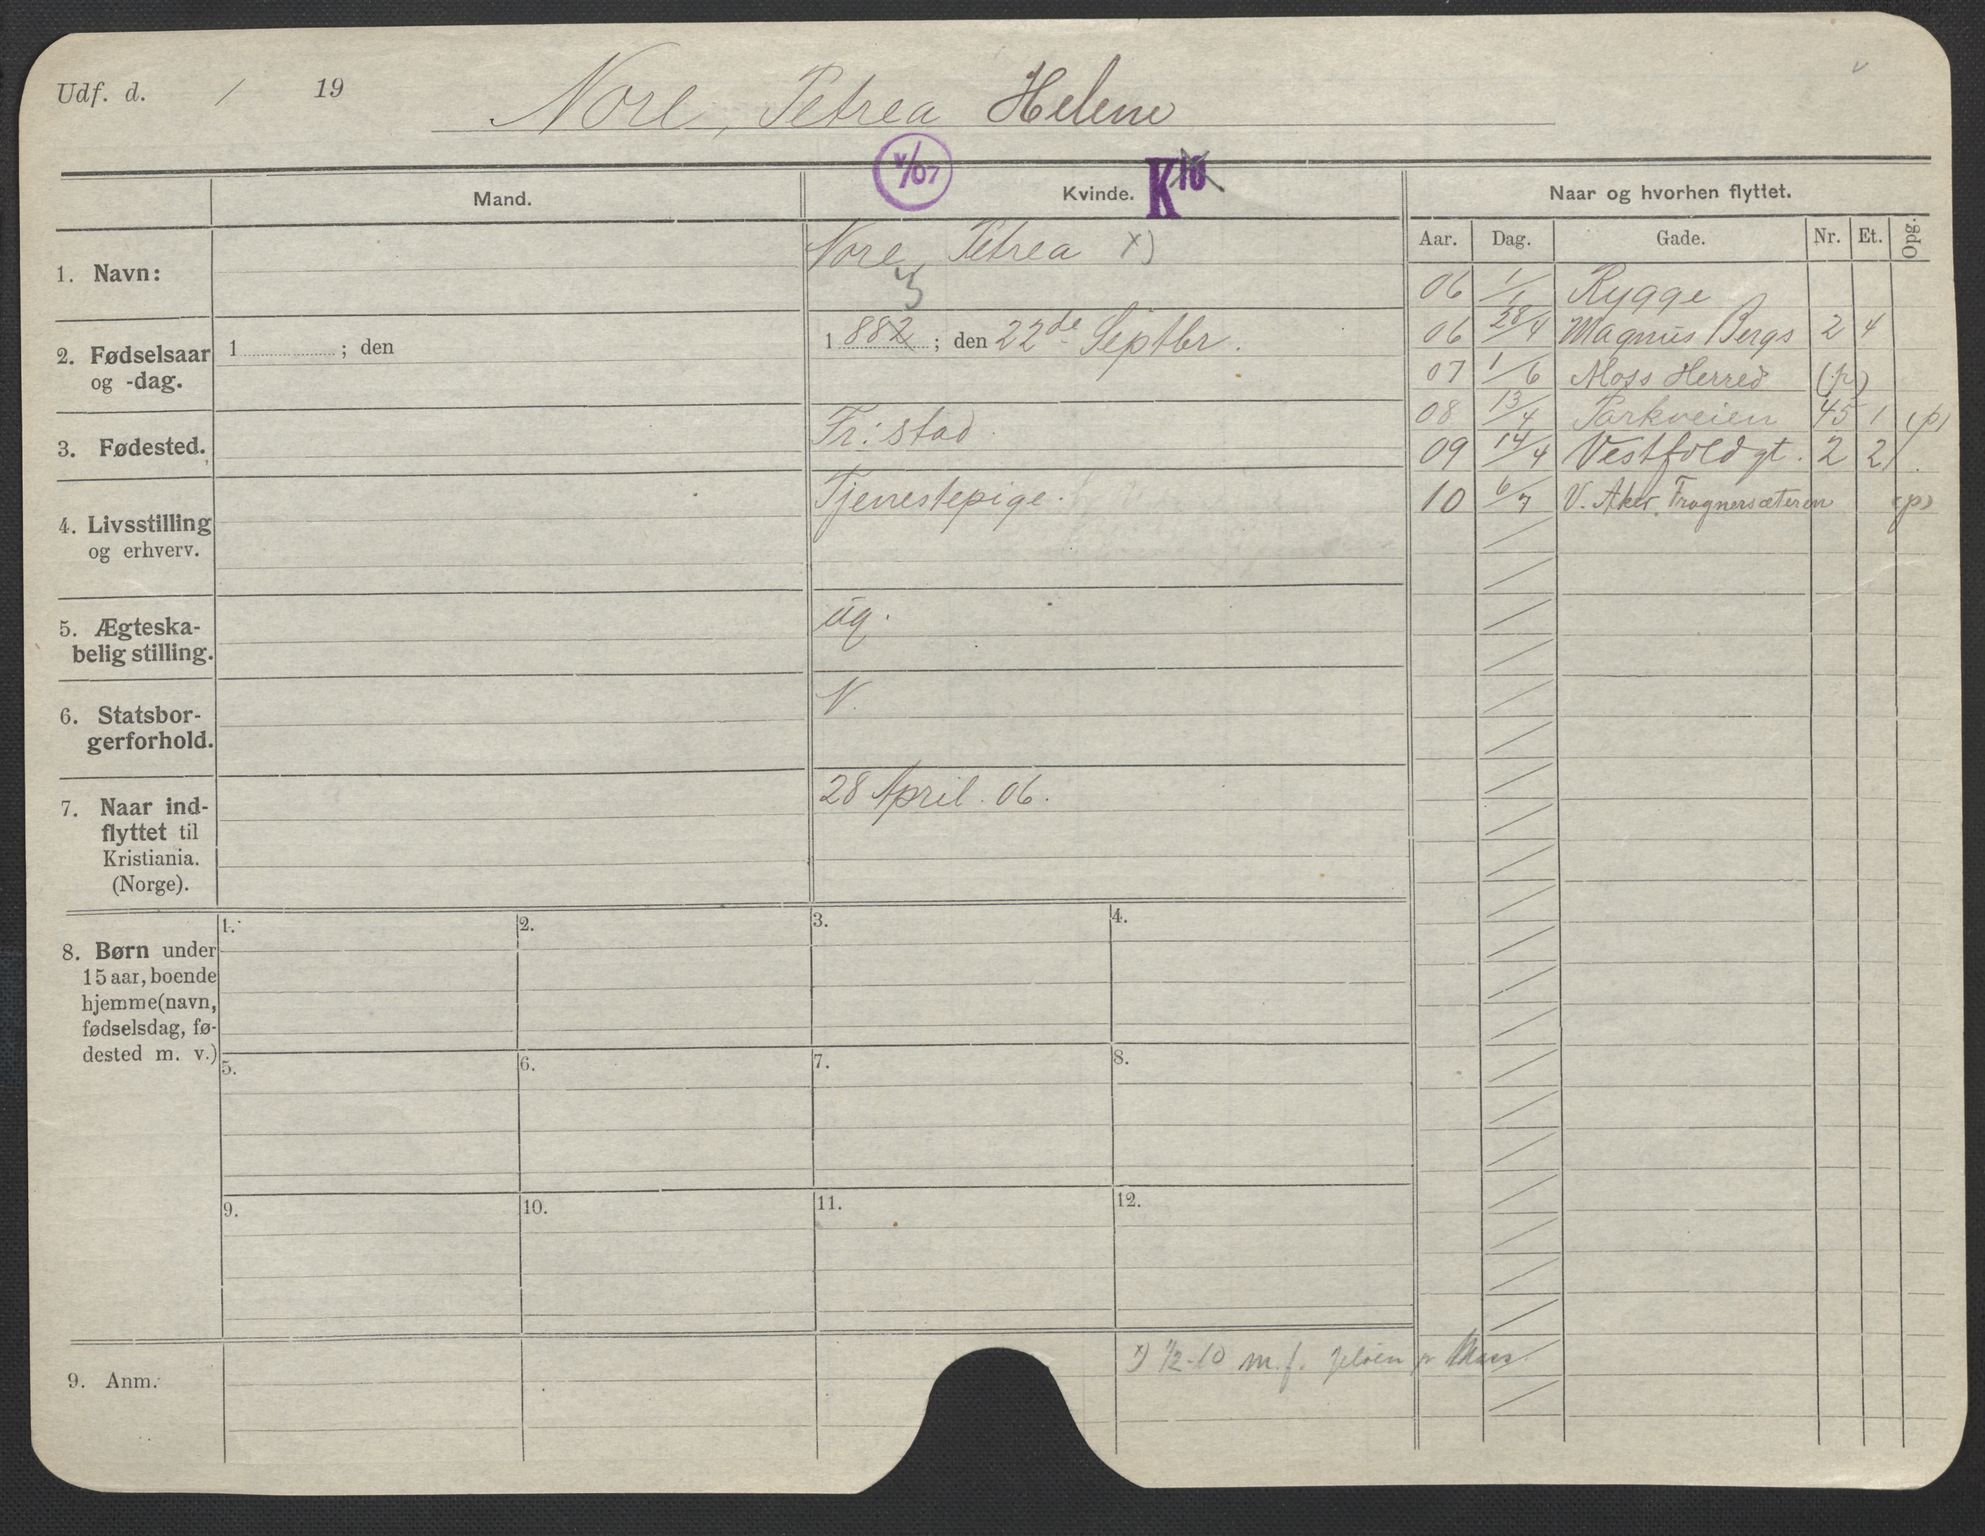 Udf. d. / 19
Nore, Petrea Helene
V/07
K10
Mand.
Kvinde.
Naar og hvorhen flyttet.
Aar. Dag. Gade. Nr. Et. Opg.
1. Navn:
Nore, Petrea x)
3
2. Fødselsaar
og -dag.
1 ; den
1 882 ; den 22de Septbr.
3. Fødested.
Fr:stad.
4. Livsstilling
og erhverv.
Tjenestepige.
5. Ægteska-
belig stilling.
ug.
6. Statsbor-
gerforhold.
N.
7. Naar ind-
flyttet til
Kristiania.
(Norge).
28 April. 06.
06 1/1 Rygge
06 28/4 Magnus Bergs 2 4
07 1/6 Moss Herred (p)
08 13/4 Parkveien 45 1 (p)
09 14/4 Vestfoldgt. 2 2
10 6/7 V. Aker, Frognersæteren (p)
8. Børn under
15 aar, boende
hjemme (navn,
fødselsdag, fø-
dested m. v.)
1. 2. 3. 4.
5. 6. 7. 8.
9. 10. 11. 12.
9. Anm.
x) 1/2-10 m. f. Jeløen pr Moss